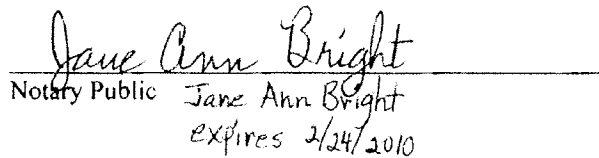 Jane Ann Bright
Notary Public Jane Ann Bright
expires 2/24/2010